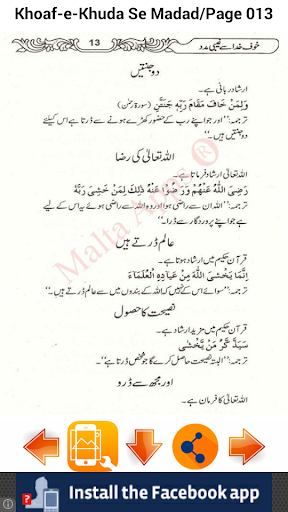 Khoaf-e-Khuda Se Madad/Page 013
خوف خدا سے غیبی مدد
13
دو جنتیں
ارشاد ربانی ہے۔
وَلِمَنْ خَافَ مَقَامَ رَبِّهٖ جَنَّتٰنِ (سورۃ رحمٰن)
ترجمہ: ''اور جو اپنے رب کے حضور کھڑے ہونے سے ڈرتا ہے اس کیلئے
دو جنتیں ہیں۔''
اللہ تعالیٰ کی رضا
اللہ تعالیٰ ارشاد فرماتا ہے۔
رَضِیَ اللّٰهُ عَنْهُمْ وَرَضُوْا عَنْهُ ذٰلِكَ لِمَنْ خَشِیَ رَبَّهٗ
ترجمہ: ''اللہ ان سے راضی ہوا اور وہ اللہ سے راضی ہوئے یہ اس کے لیے
ہے جو اپنے پروردگار سے ڈرا۔''
عالم ڈرتے ہیں
قرآن حکیم میں ارشاد ہوتا ہے۔
اِنَّمَا یَخْشَی اللّٰهَ مِنْ عِبَادِهِ الْعُلَمَاءُ
ترجمہ: ''سوائے اس کے نہیں کہ اللہ کے بندوں میں سے عالم ڈرتے ہیں۔''
نصیحت کا حصول
قرآن حکیم میں مزید ارشاد ہے۔
سَیَذَّكَّرُ مَنْ یَّخْشٰی
ترجمہ: ''البتہ نصیحت حاصل کرے گا جو شخص ڈرتا ہے۔''
اور مجھ سے ڈرو
اللہ تعالیٰ کا فرمان ہے۔
Malta Apps ®
Install the Facebook app